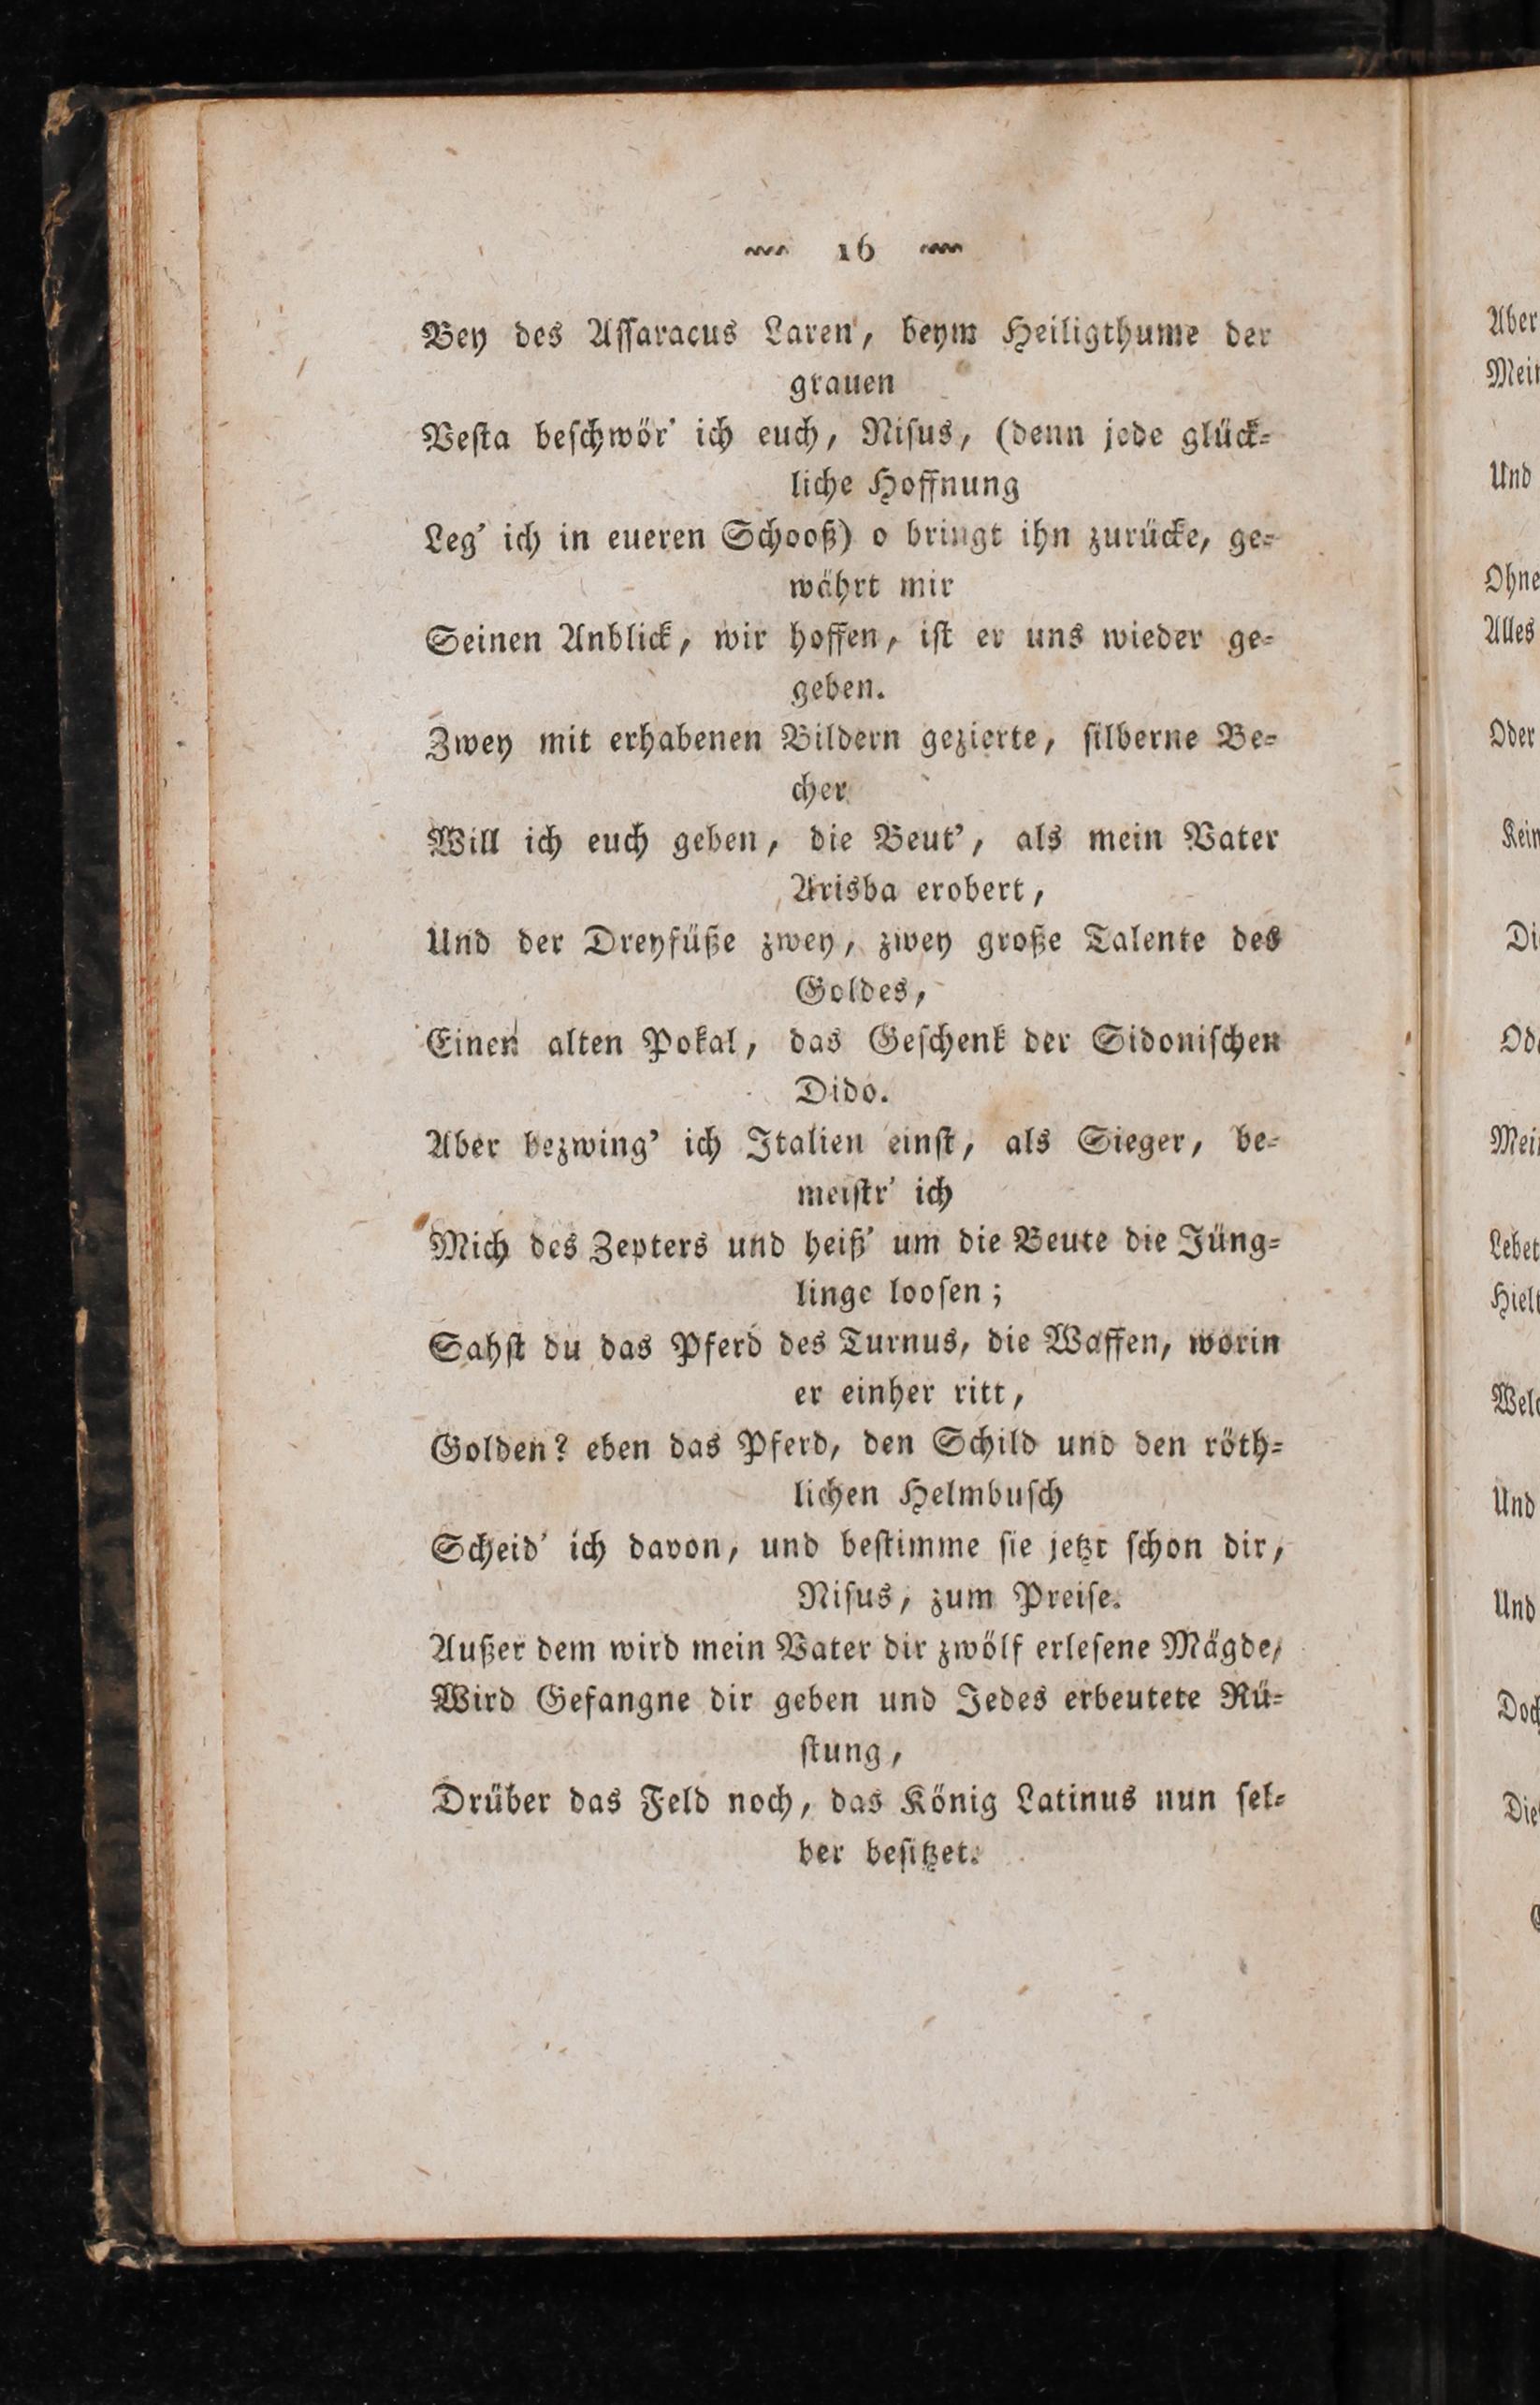 16
Bey des Aſſaracus Laren, beym Heiligthume der
grauen
Veſta beſchwör' ich euch, Niſus, (denn jede glück-
liche Hoffnung
Leg' ich in eueren Schooß) o bringt ihn zurücke, ge-
währt mir
Seinen Anblick, wir hoffen, iſt er uns wieder ge-
geben.
Zwey mit erhabenen Bildern gezierte, ſilberne Be-
cher
Will ich euch geben, die Beut', als mein Vater
Arisba erobert,
Und der Dreyfüße zwey, zwey große Talente des
Goldes,
Einen alten Pokal, das Geſchenk der Sidoniſchen
Dido.
Aber bezwing' ich Italien einſt, als Sieger, be-
meiſtr' ich
Mich des Zepters und heiß' um die Beute die Jüng-
linge looſen;
Sahſt du das Pferd des Turnus, die Waffen, worin
er einher ritt,
Golden? eben das Pferd, den Schild und den röth-
lichen Helmbuſch
Scheid' ich davon, und beſtimme ſie jetzt ſchon dir,
Niſus, zum Preiſe.
Außer dem wird mein Vater dir zwölf erleſene Mägde,
Wird Gefangne dir geben und Jedes erbeutete Rü-
ſtung,
Drüber das Feld noch, das König Latinus nun ſel-
ber beſitzet.
Aber
Und
Ohne
Alles
Oder
Und
Und